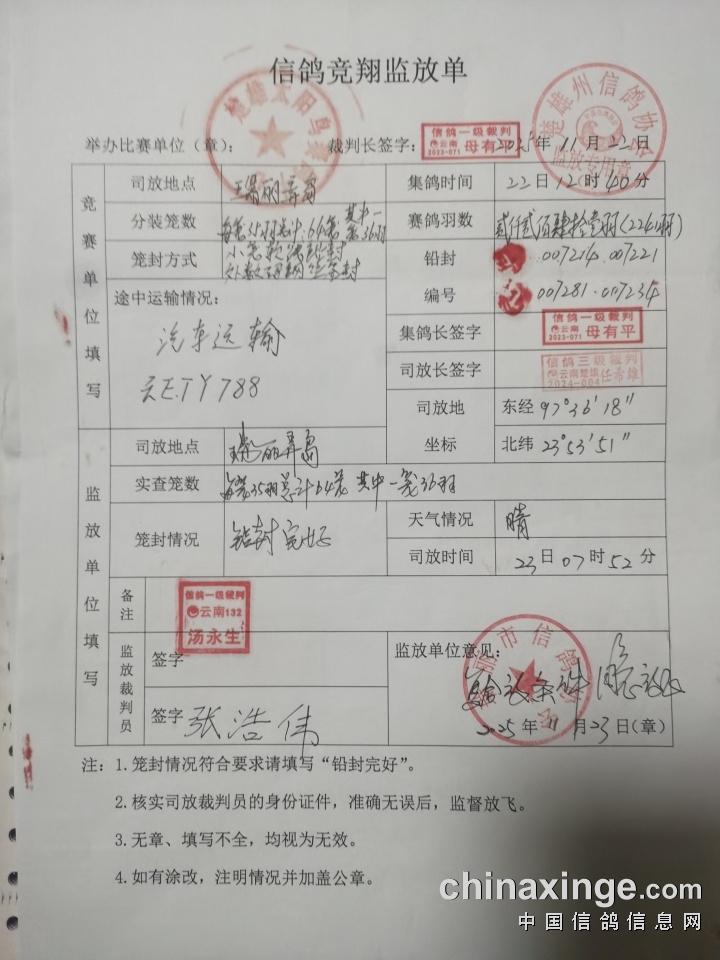 信鸽竞翔监放单
楚雄州信鸽协会
监放专用章
举办比赛单位（章）：
裁判长签字：
信鸽一级裁判
云南
2023-071
母有平
2025年11月22日
竞赛单位填写
司放地点
瑞丽弄岛
集鸽时间
22日12时40分
分装笼数
每笼35羽总计:64笼 其中一笼36羽
赛鸽羽数
贰仟贰佰肆拾壹羽(2241羽)
笼封方式
铅封
007214.007221
编号
007281.007234
途中运输情况：
汽车运输
云E.TY788
集鸽长签字
信鸽一级裁判
云南
2023-071
母有平
司放长签字
信鸽三级裁判
云南楚雄
2024-004
任希雄
司放地
坐标
东经 97°36′18″
北纬 23°53′51″
监放单位填写
司放地点
瑞丽弄岛
实查笼数
每笼35羽总计64笼 其中一笼36羽
笼封情况
铅封完好
天气情况
晴
司放时间
23日07时52分
备注
信鸽一级裁判
云南132
汤永生
监放裁判员
签字
签字 张浩伟
监放单位意见：
市信鸽
条件 同意放飞
2025年11月23日(章)
注：1.笼封情况符合要求请填写“铅封完好”。
2.核实司放裁判员的身份证件，准确无误后，监督放飞。
3.无章、填写不全，均视为无效。
4.如有涂改，注明情况并加盖公章。
chinaxinge.com
中国信鸽信息网